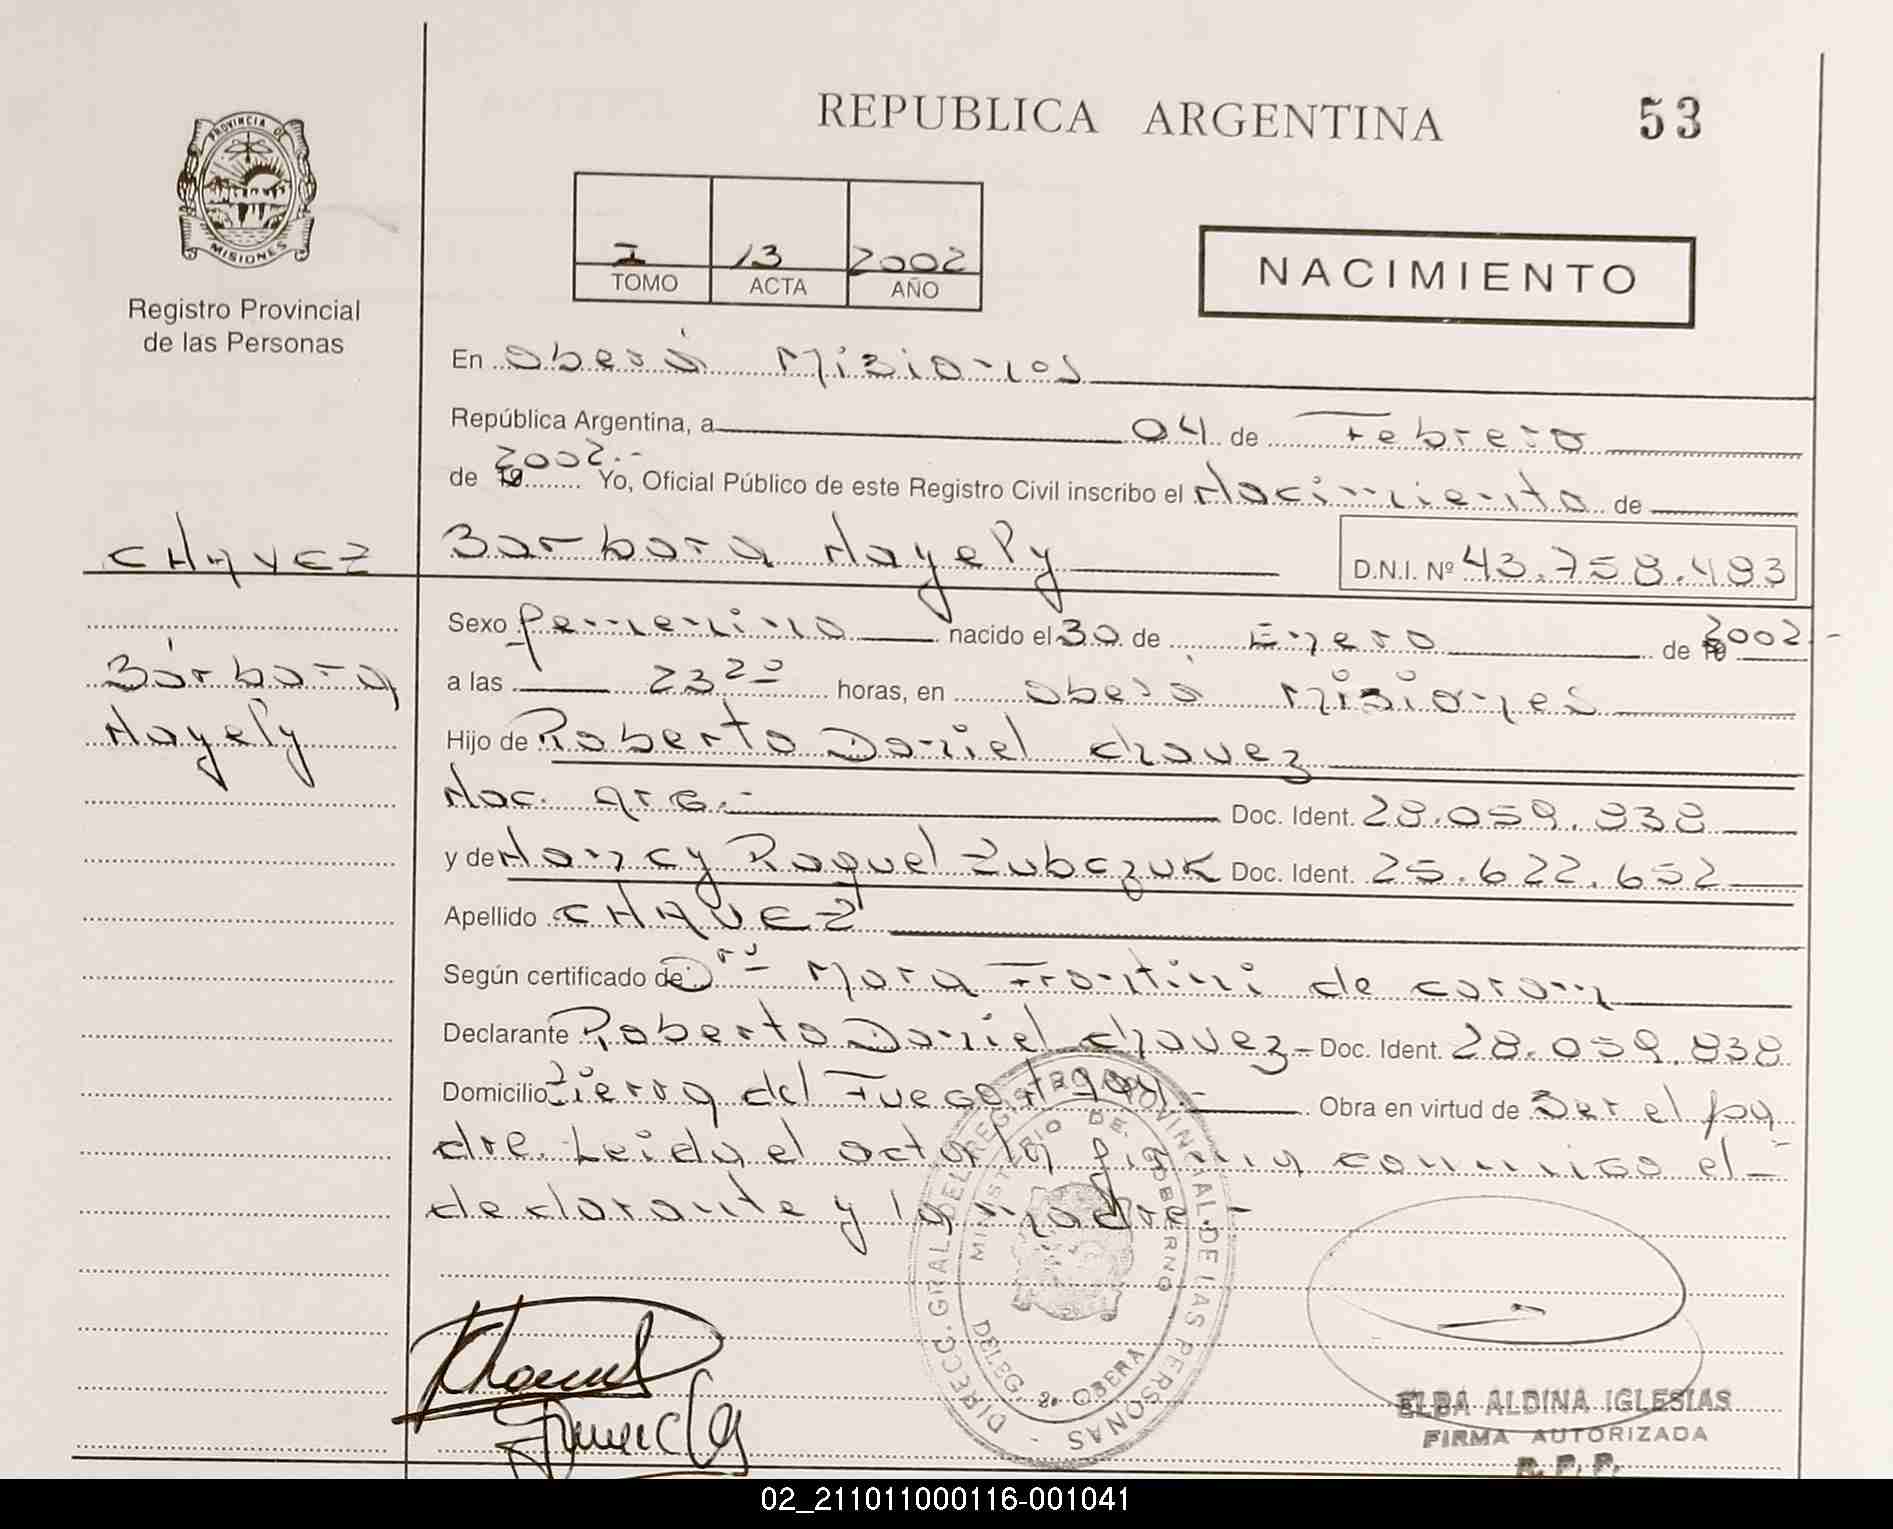 REPUBLICA ARGENTINA
53
PROVINCIA DE
MISIONES
Registro Provincial
de las Personas
I 13 2002
TOMO ACTA AÑO
NACIMIENTO
En Oberá Misiones
República Argentina, a 04 de Febrero
de 2002.- Yo, Oficial Público de este Registro Civil inscribo el Nacimiento de
CHAVEZ
Barbara Nayely
D.N.I. Nº 43.758.493
Sexo femenino nacido el 30 de Enero de 2002.-
Bárbara
Nayely
a las 23 20 horas, en Oberá Misiones
Hijo de Roberto Daniel Chavez
Nac. Arg.- Doc. Ident. 28.059.838
y de Nancy Raquel Zubczuk Doc. Ident. 25.622.652
Apellido CHAVEZ
Según certificado de Dra Mara Frontini de Coroni
Declarante Roberto Daniel Chavez- Doc. Ident. 28.059.838
Domicilio Tierra del Fuego Obra en virtud de Ser el pa
dre. Leida el acta la firma conmigo el-
declarante y la madre.-
DIRECC. GRAL DEL REGISTRO PROVINCIAL DE LAS PERSONAS -
MINISTERIO DE GOBIERNO
DELEG. 2º OBERA
ELBA ALDINA IGLESIAS
FIRMA AUTORIZADA
R. P. P.
02_211011000116-001041